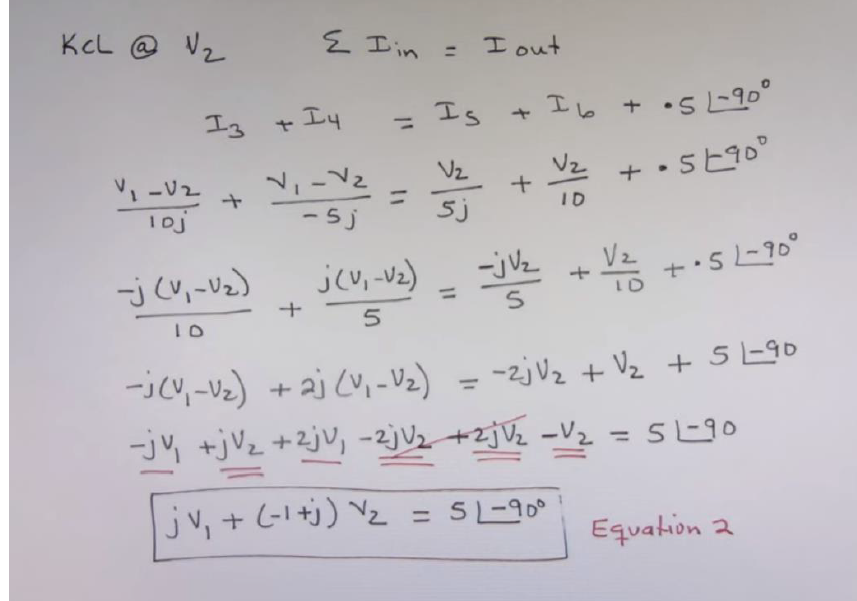 KCL @ V₂ Σ I in = I out
I₃ + I₄ = I₅ + I₆ + .5 ∠-90°
(V₁ - V₂)/10j + (V₁ - V₂)/-5j = V₂/5j + V₂/10 + .5 ∠-90°
-j(V₁-V₂)/10 + j(V₁-V₂)/5 = -jV₂/5 + V₂/10 + .5 ∠-90°
-j(V₁-V₂) + 2j(V₁-V₂) = -2jV₂ + V₂ + 5 ∠-90
-jV₁ + jV₂ + 2jV₁ - 2jV₂ + 2jV₂ - V₂ = 5 ∠-90
jV₁ + (-1+j) V₂ = 5 ∠-90° Equation 2